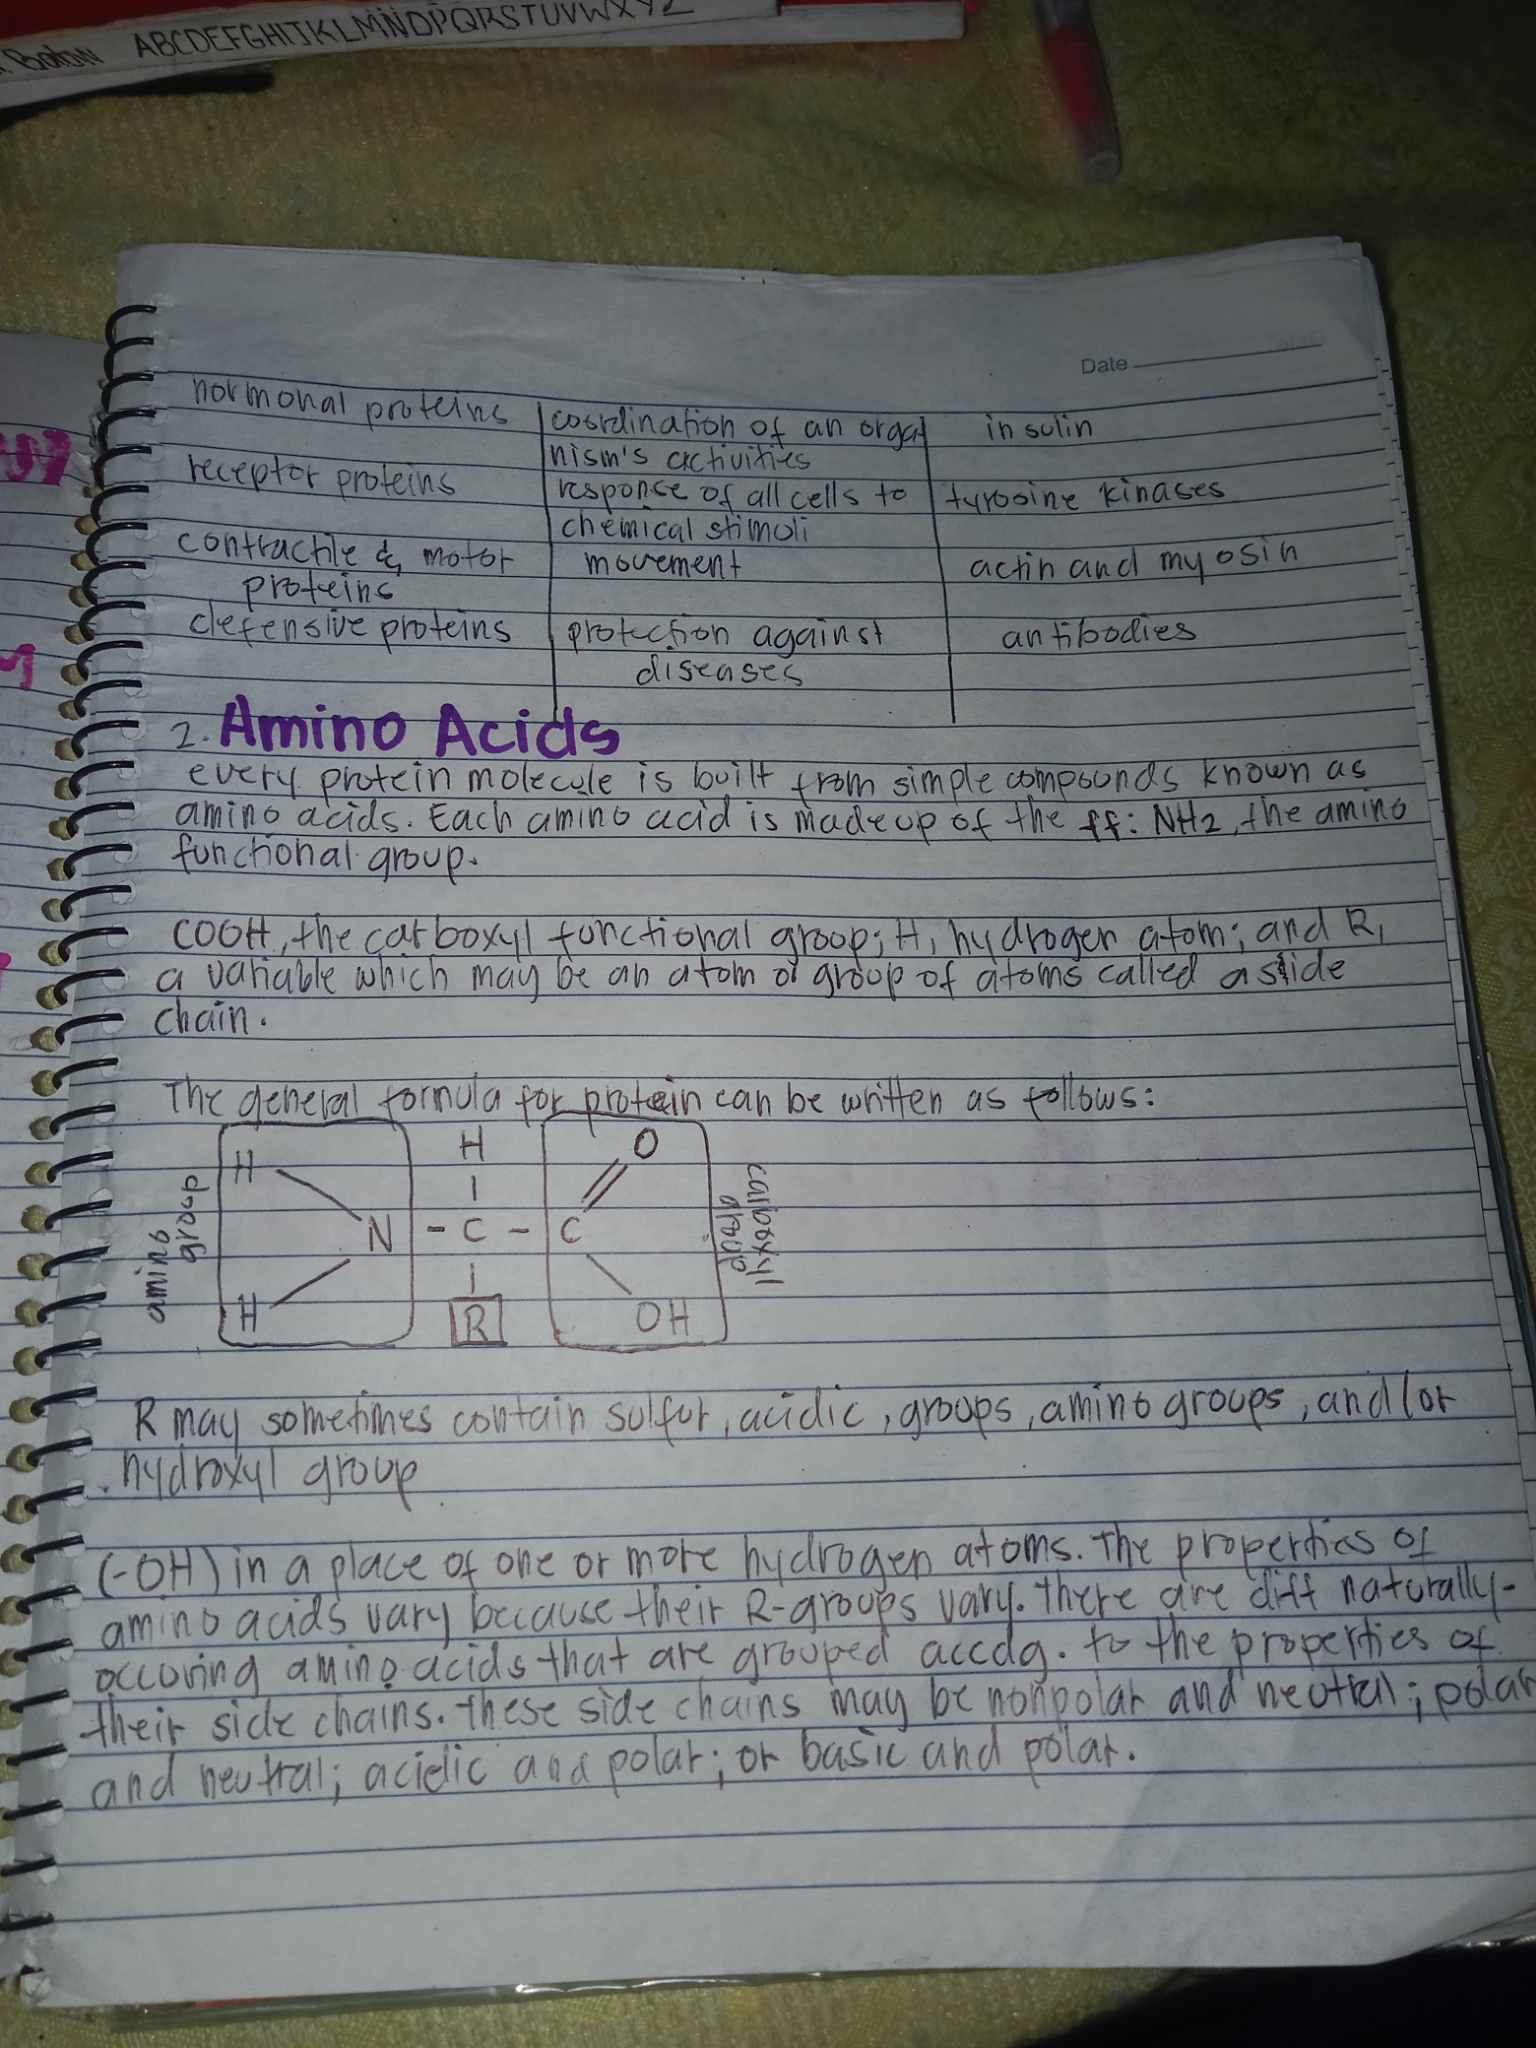 Baton ABCDEFGHIJKLMNDPQRSTUVWXYZ
Date
hormonal proteins coordination of an orga insulin
nism's activities
receptor proteins response of all cells to tyrosine kinases
chemical stimuli
contractile & motor movement actin and myosin
proteins
defensive proteins protection against antibodies
diseases
2. Amino Acids
every protein molecule is built from simple compounds known as
amino acids. Each amino acid is made up of the ff: NH2, the amino
functional group.
COOH, the carboxyl functional group; H, hydrogen atom; and R,
a variable which may be an atom or group of atoms called a side
chain.
The general formula for protein can be written as follows:
H H O
amino group N - C - C carboxyl group
H R OH
R may sometimes contain sulfur, acidic, groups, amino groups, and/or
hydroxyl group
(-OH) in a place of one or more hydrogen atoms. The properties of
amino acids vary because their R-groups vary. There are diff naturally-
occuring amino acids that are grouped accdg. to the properties of
their side chains. These side chains may be nonpolar and neutral; polar
and neutral; acidic and polar; or basic and polar.